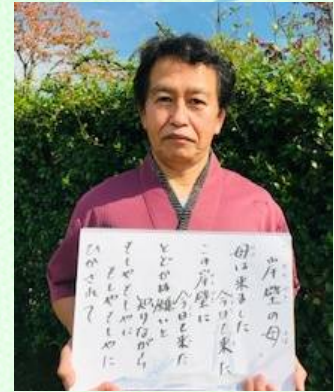 岸壁の母
母は来ました
今日も来た
この岸壁に
今日も来た
とどかぬ願いと
知りながら
もしやもしやに
もしやもしやに
ひかされて